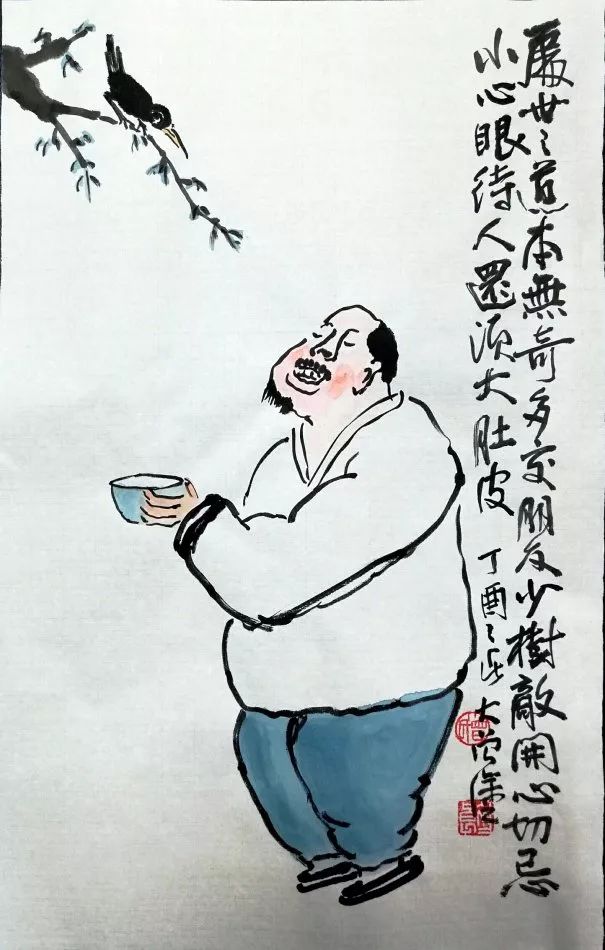 處世之道本無奇多交朋友少樹敵開心切忌
小心眼待人還須大肚皮 丁酉之
大